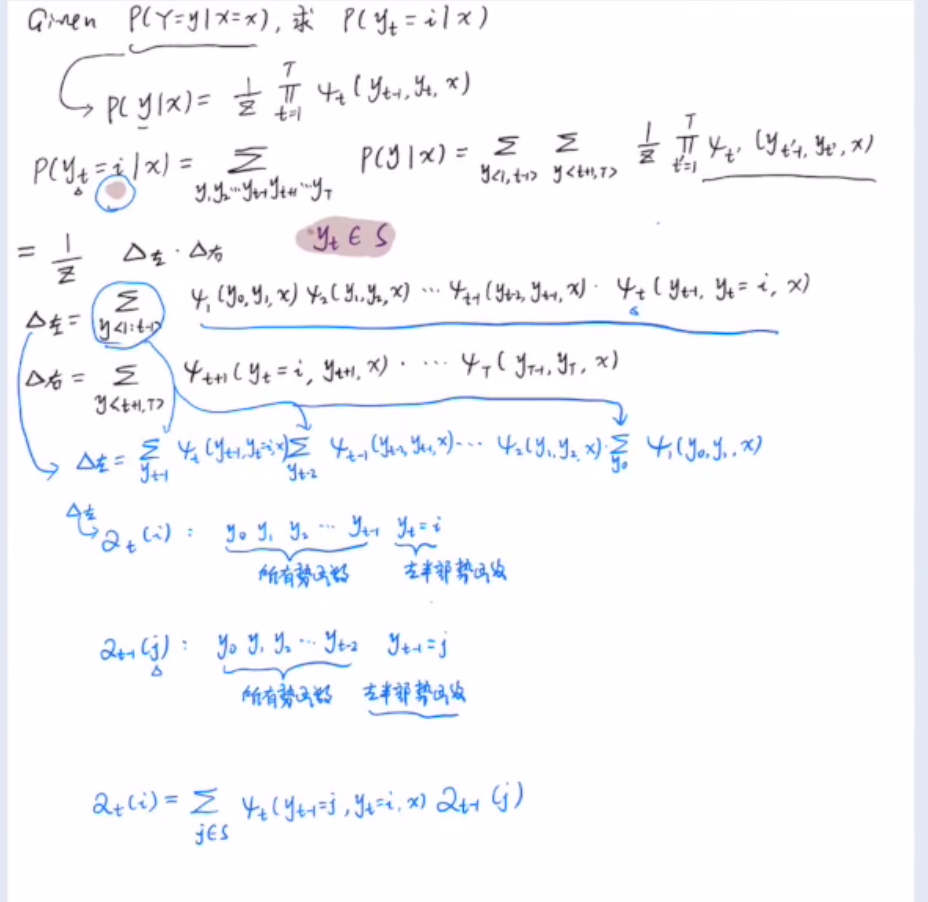 Given P(Y=y|X=x), 求 P(y_t=i|x)
P(y|x) = 1/Z ∏_{t=1}^{T} ψ_t(y_{t-1}, y_t, x)
P(y_t=i|x) = Σ_{y_1,y_2…y_{t-1}y_{t+1}…y_T} P(y|x) = Σ_{y<1,t-1>} Σ_{y<t+1,T>} 1/Z ∏_{t'=1}^{T} ψ_{t'}(y_{t'-1}, y_{t'}, x)
= 1/Z Δ左 · Δ右 y_t ∈ S
Δ左 = Σ_{y<1:t-1>} ψ_1(y_0,y_1,x) ψ_2(y_1,y_2,x) … ψ_{t-1}(y_{t-2},y_{t-1},x) · ψ_t(y_{t-1}, y_t=i, x)
Δ右 = Σ_{y<t+1,T>} ψ_{t+1}(y_t=i, y_{t+1}, x) · … ψ_T(y_{T-1}, y_T, x)
Δ左 = Σ_{y_{t-1}} ψ_t(y_{t-1},y_t=i,x) Σ_{y_{t-2}} ψ_{t-1}(y_{t-2},y_{t-1},x) … ψ_2(y_1,y_2,x) · Σ_{y_0} ψ_1(y_0,y_1,x)
Δ左
α_t(i) : y_0 y_1 y_2 … y_{t-1} y_t=i
所有势函数 左半部势函数
α_{t-1}(j) : y_0 y_1 y_2 … y_{t-2} y_{t-1}=j
所有势函数 左半部势函数
α_t(i) = Σ_{j∈S} ψ_t(y_{t-1}=j, y_t=i, x) α_{t-1}(j)